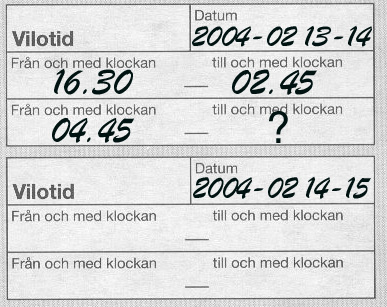 Datum
Vilotid 2004-02 13-14
Från och med klockan till och med klockan
16.30 — 02.45
Från och med klockan till och med klockan
04.45 — ?
Datum
Vilotid 2004-02 14-15
Från och med klockan till och med klockan
—
Från och med klockan till och med klockan
—